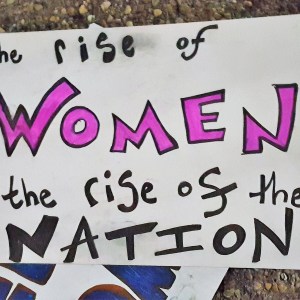 the rise of
WOMEN
the rise of the
NATION